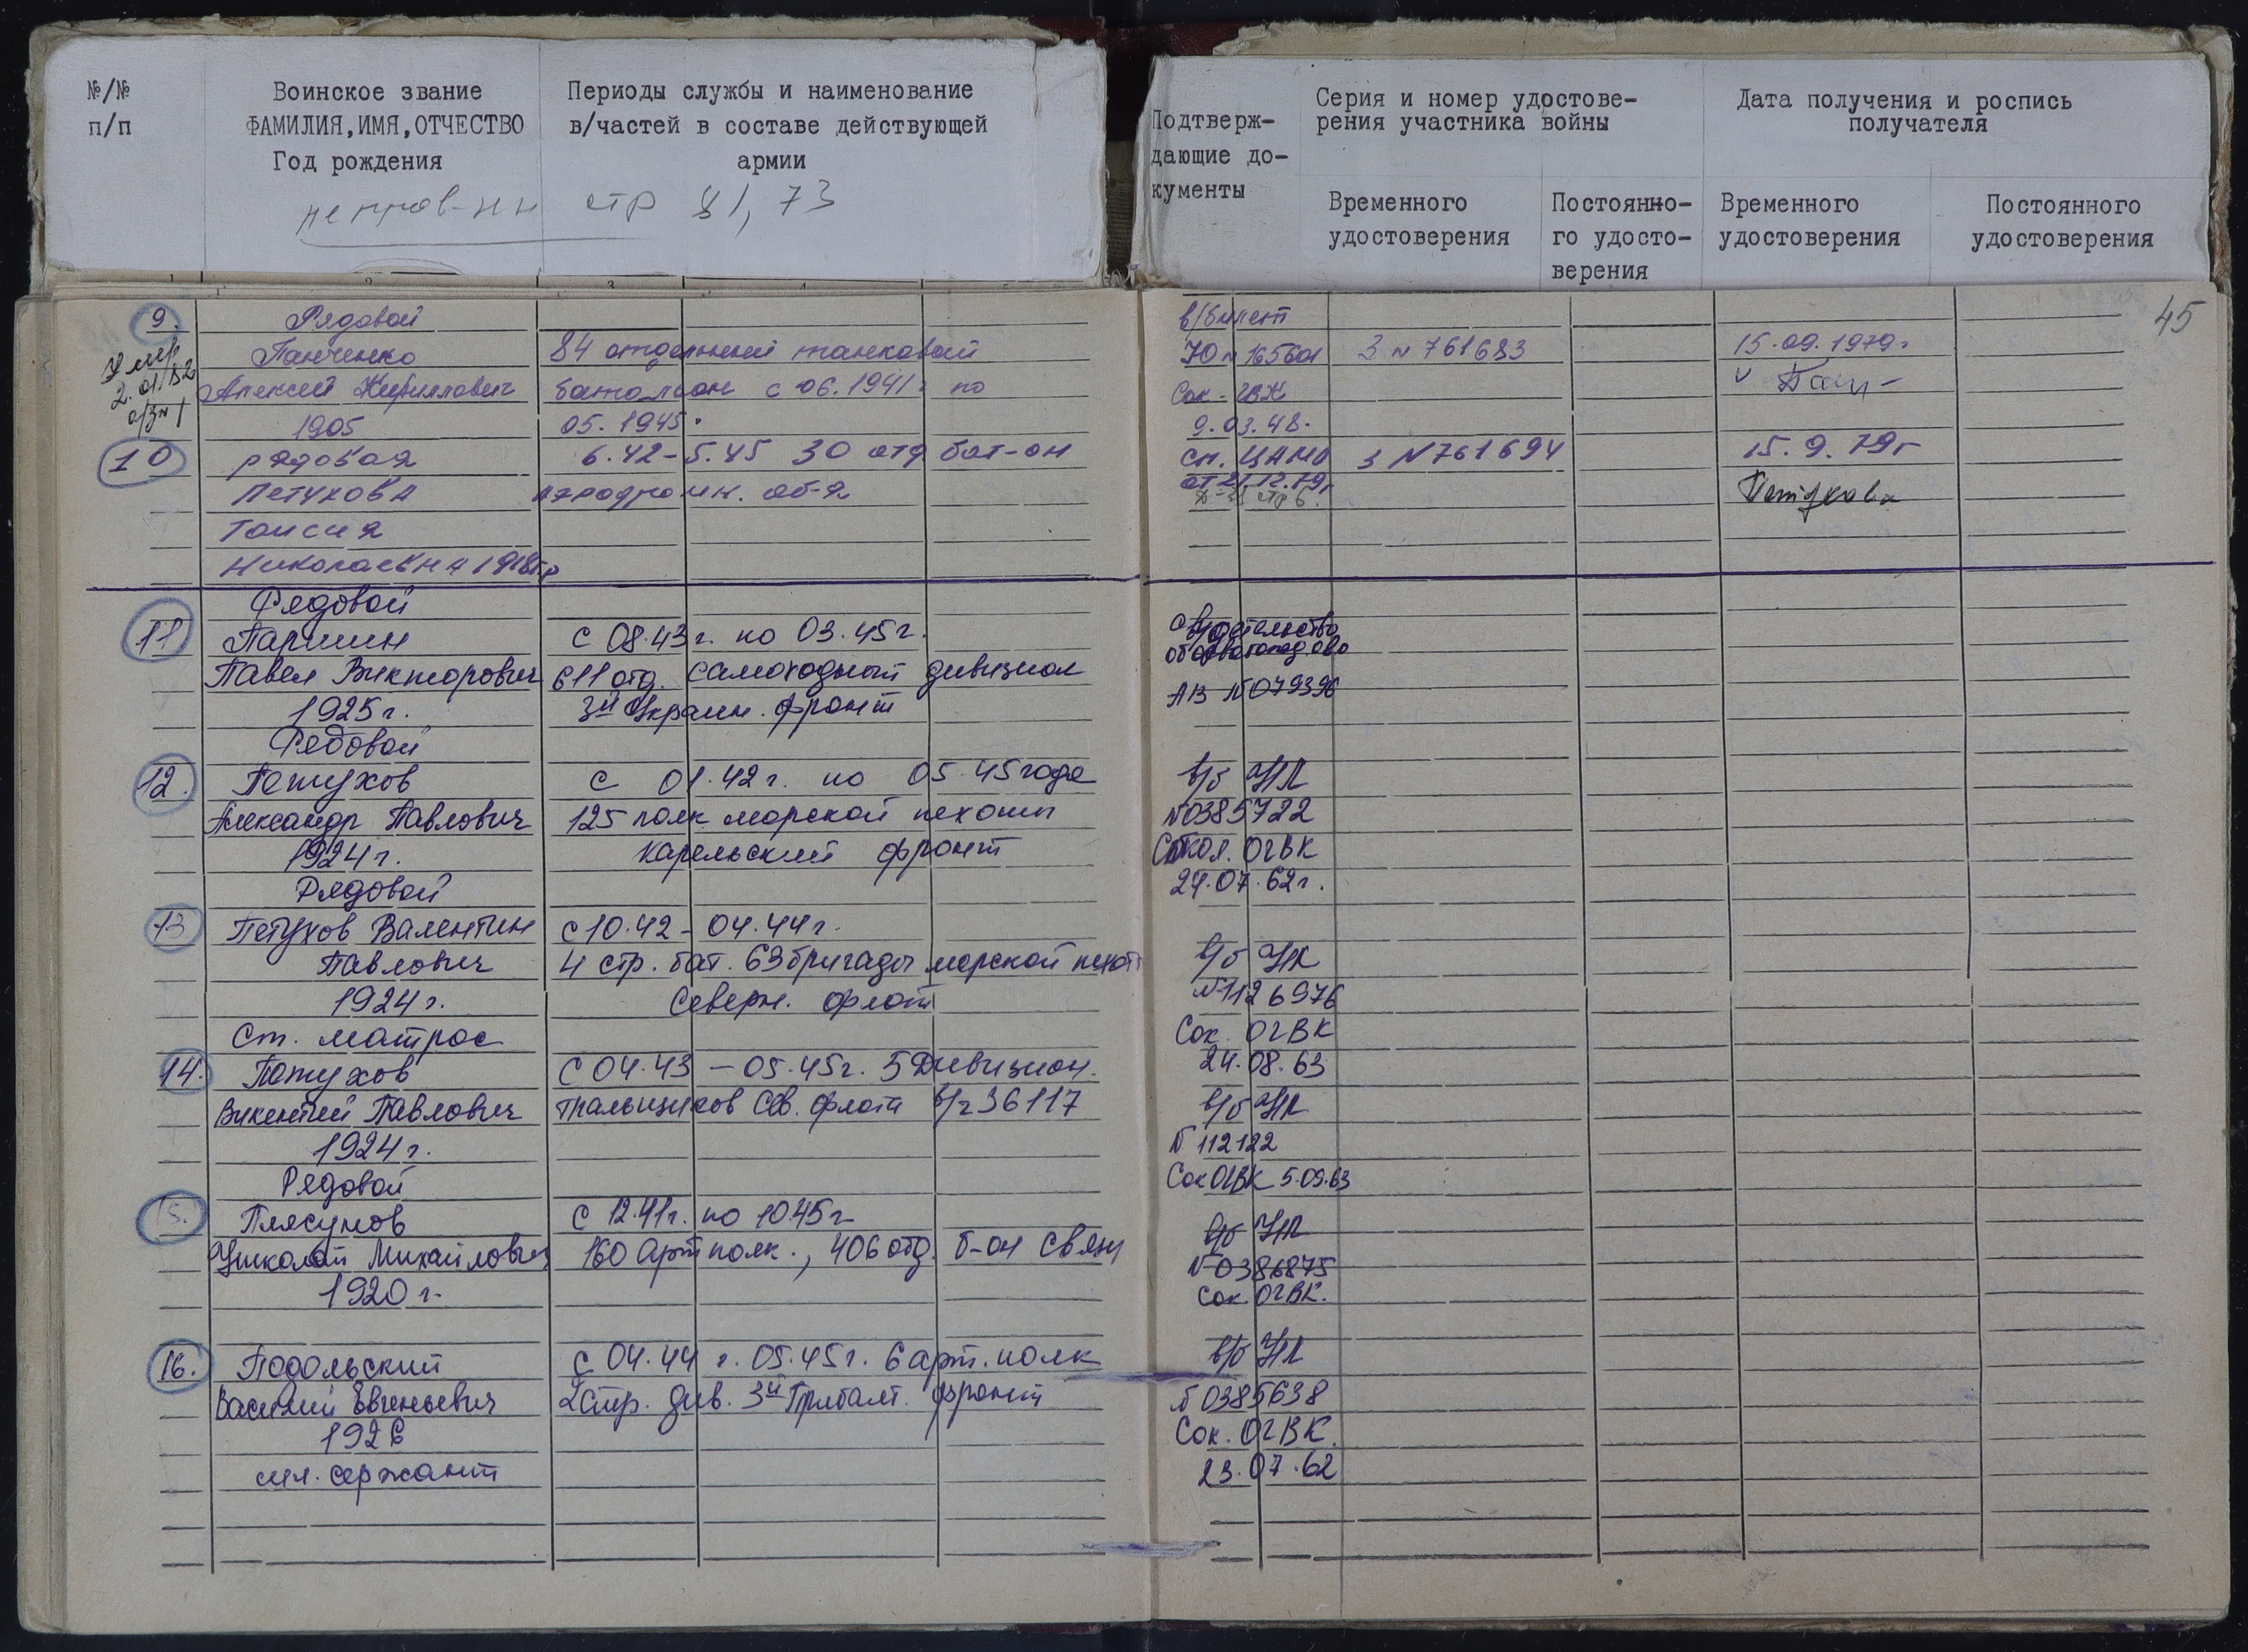 №/№
п/п
Воинское звание
ФАМИЛИЯ, ИМЯ, ОТЧЕСТВО
Год рождения
Периоды службы и наименование
в/частей в составе действующей
армии
стр 81, 73
Подтверж-
дающие до-
кументы
Серия и номер удостове-
рения участника войны
Дата получения и роспись
получателя
Временного
удостоверения
Постоянно-
го удосто-
верения
Временного
удостоверения
Постоянного
удостоверения
45
9.
Умер
2.01.82
а/з № 1
Рядовой
Панченко
Алексей Кириллович
1905
84 отдельный танковый
батальон с 06.1941 г по
05.1945.
в/билет
Ю № 165601
Сок. ГВК
9.03.48.
З № 761683
15.09.1979 г
10
рядовая
Петухова
Таисия
Николаевна 1918 г.р
6.42 - 5.45 30 отд бат-он
аэродромн. об-я
сп. ЦАМО
от 21.12.79 г
стр 6.
З № 761694
15.9.79 г
Петухова
11
Рядовой
Паршин
Павел Викторович
1925 г.
с 08.43 г. по 03.45 г.
611 отд. самоходный дивизион
3й Украин. фронт
свидетельство
АВ № 079396
12.
Рядовой
Петухов
Александр Павлович
1924 г.
с 01.42 г. по 05.45 года
125 полк морской пехоты
Карельский фронт
в/б НЛ
№ 0385722
Сокол. ОГВК
24.07.62 г.
13
Рядовой
Петухов Валентин
Павлович
1924 г.
с 10.42 - 04.44 г.
4 стр. бат. 63 бригады морской пехоты
Северн. флот
в/б НЛ
№ 1126976
Сок. ОГВК
24.08.63
14.
Ст. матрос
Петухов
Викентий Павлович
1924 г.
с 04.43 - 05.45 г. 5 Дивизион.
тральщиков Сев. флота в/ч 36117
в/б НЛ
№ 112122
Сок ОГВК 5.09.63
15.
Рядовой
Плясунов
Николай Михайлович
1920 г.
с 12.41 г. по 10.45 г
160 Арт полк., 406 отд. б-он связи
в/б НЛ
№ 0386875
Сок ОГВК.
16.
Подольский
Василий Евгеньевич
1926
мл. сержант
с 04.44 г. 05.45 г. 6 арт. полк
2 стр. див. 3й Прибалт. фронт
в/б НЛ
№ 0385638
Сок. ОГВК.
23.07.62